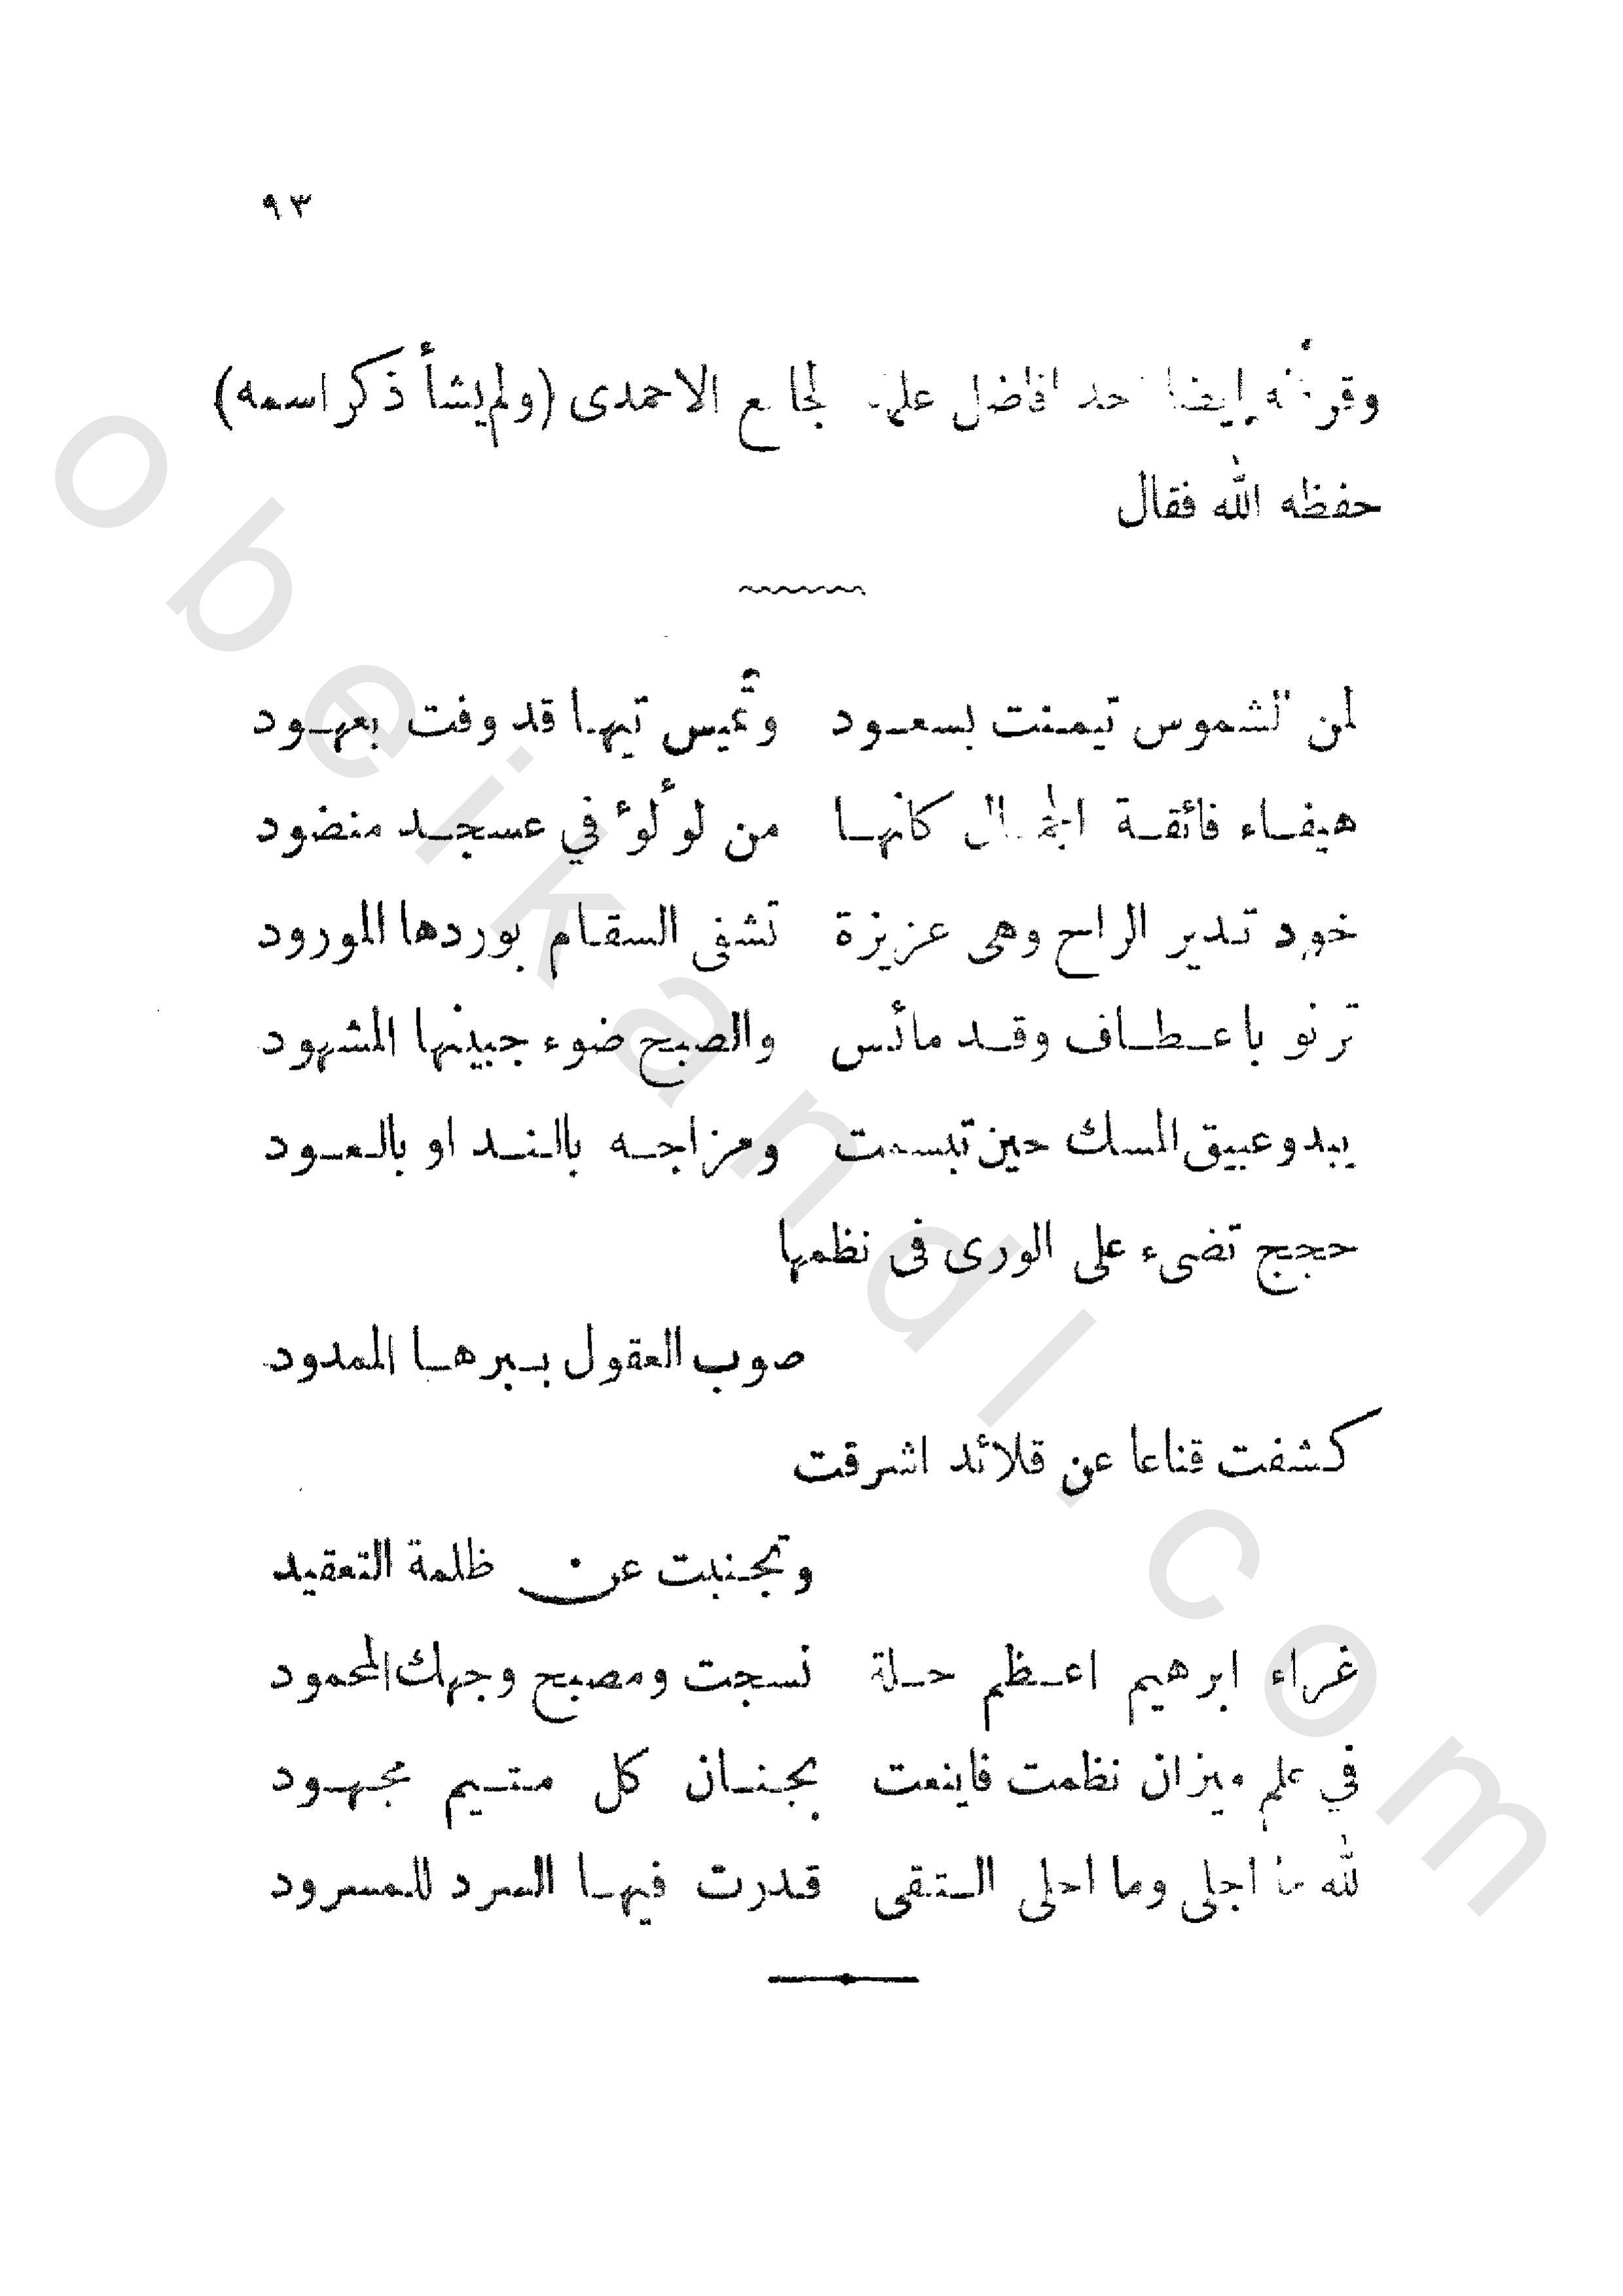 ٩٣
وقرظه ايضا احد افاضل علماء الجامع الاحمدى (ولم يشأ ذكر اسمه)
حفظه الله فقال
لمن الشموس تيمنت بسعود وتميس تيها قد وفت بعهود
هيفاء فائقة الجمال كأنها من لؤلؤ في عسجد منضود
خود تدير الراح وهى عزيزة تشفى السقام بوردها المورود
ترنو باعطاف وقد مائس والصبح ضوء جبينها المشهود
يبدو عبيق المسك حين تبسمت ومزاجه بالند او بالعود
حجج تضىء على الورى فى نظمها
صوب العقول ببرها الممدود
كشفت قناعا عن قلائد اشرقت
وتجنبت عن ظلمة التعقيد
غراء ابرهيم اعظم حلة نسجت ومصبح وجهك المحمود
في علم ميزان نظمت فاينعت بجنان كل متيم مجهود
لله ما اجلى وما احلى التقى قدرت فيها السرد للمسرود
obeikandl.com